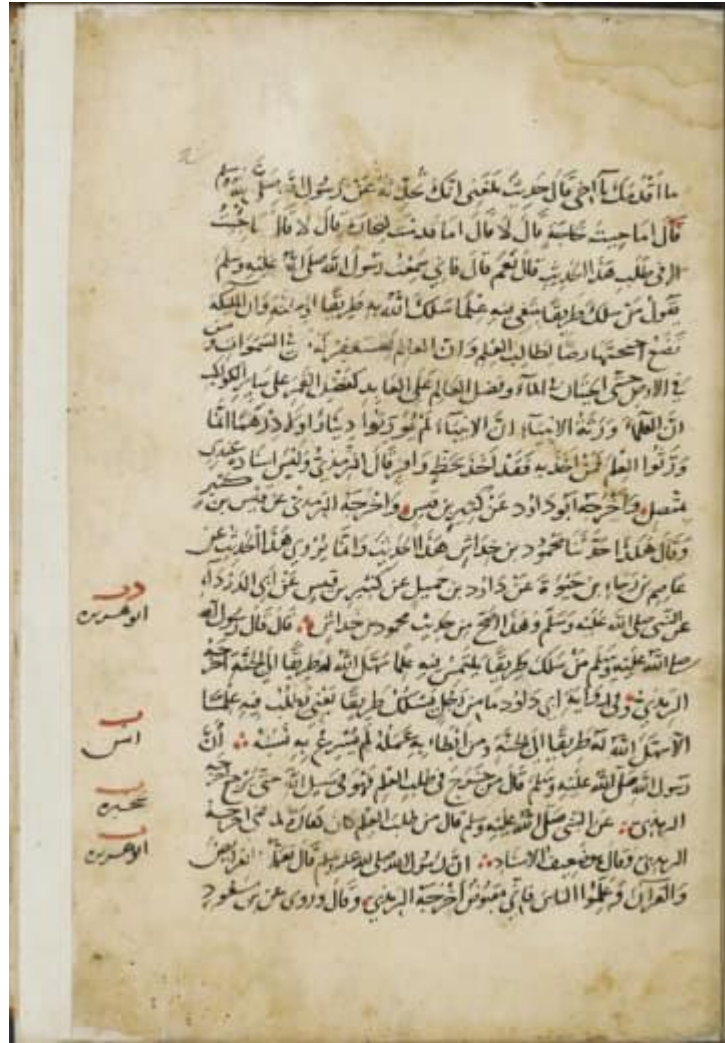 ما اقدمك يا اخي قال حديث بلغني انك تحدثه عن رسول الله صلى الله عليه وسلم
قال اما جيت لحاجة قال لا قال اما قدمت لتجارة قال لا قال ما جيت
الا في طلب هذا الحديث قال نعم قال فاني سمعت رسول الله صلى الله عليه وسلم
يقول من سلك طريقا يبتغي فيه علما سلك الله به طريقا الى الجنة وان الملئكة
لتضع اجنحتها رضا لطالب العلم وان العالم ليستغفر له من في السموات ومن
في الارض حتى الحيتان في الماء وفضل العالم على العابد كفضل القمر على ساير الكواكب
ان العلماء ورثة الانبياء ان الانبياء لم يورثوا دينارا ولا درهما انما
ورثوا العلم فمن اخذ به فقد اخذ بحظ وافر قال الترمذي وليس اسناده عندي
بمتصل واخرجه ابو داود عن كثير بن قيس واخرجه الترمذي عن قيس بن كثير
وقال هكذا حدثنا محمود بن خداش هذا الحديث وانما يروى هذا الحديث عن
عاصم بن رجاء بن حيوة عن داود بن جميل عن كثير بن قيس عن ابي الدرداء
عن النبي صلى الله عليه وسلم وهذا اصح من حديث محمود بن خداش قال قال رسول الله
صلى الله عليه وسلم من سلك طريقا يلتمس فيه علما سهل الله له طريقا الى الجنة اخرجه
الترمذي وفي رواية ابي داود ما من رجل يسلك طريقا يطلب فيه علما
الا سهل الله له طريقا الى الجنة ومن ابطاء به عمله لم يسرع به نسبه ان
رسول الله صلى الله عليه وسلم قال من خرج في طلب العلم فهو في سبيل الله حتى يرجع اخرجه
الترمذي عن النبي صلى الله عليه وسلم قال من طلب العلم كان كفارة لما مضى اخرجه
الترمذي وقال ضعيف الاسناد ان رسول الله صلى الله عليه وسلم قال تعلموا الفرايض
والقران وعلموا الناس فاني مقبوض اخرجه الترمذي وقال وروى عن بن مسعود
ابو هريرة
انس
سخبرة
ابو هريرة